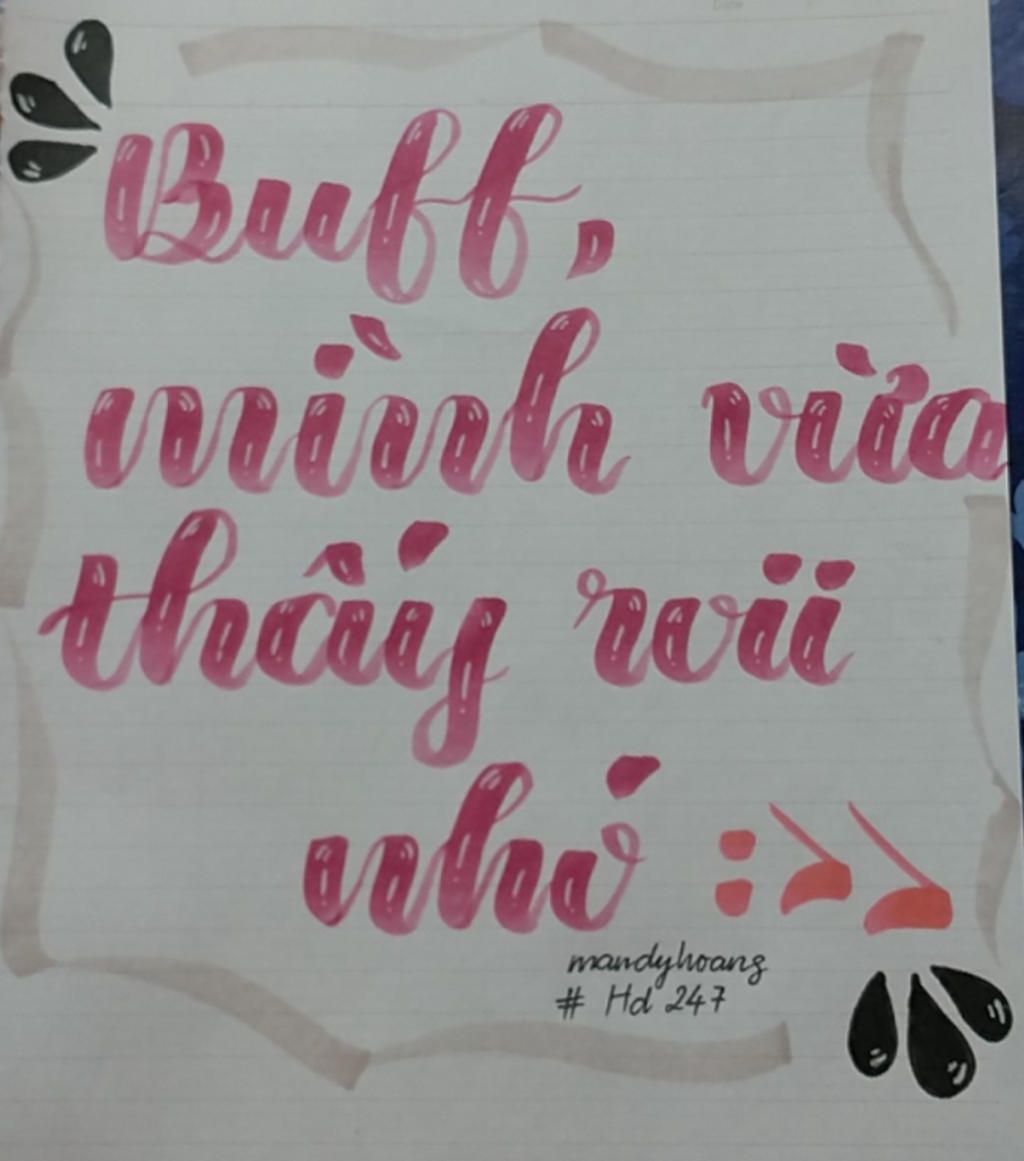 Buff,
mình vừa
thấy rvii
nhớ :>>
mandyhoang
# Hd 247